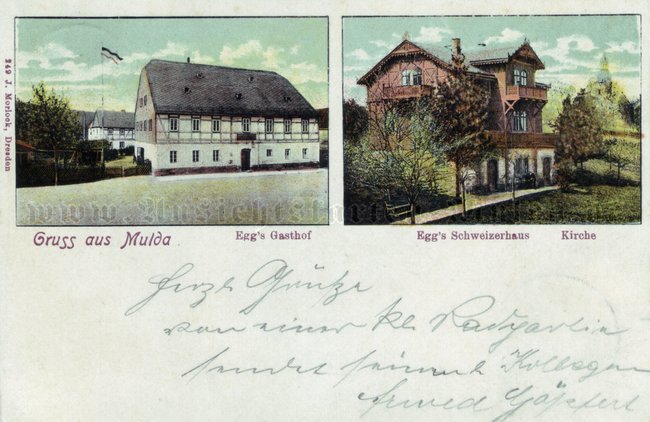 249 J. Morlock, Dresden
www.Ansichtskar
Gruss aus Mulda
Egg's Gasthof
Egg's Schweizerhaus
Kirche
Herzl Grüße
von einer kl Radpartie
sendet seinem Kollegen
Arwed Göpfert